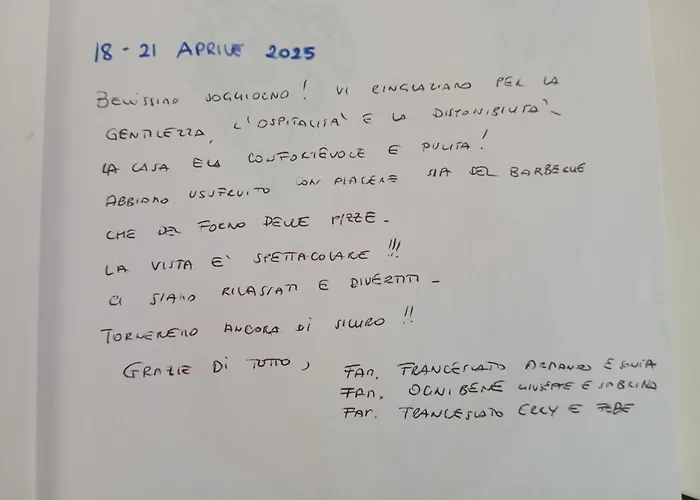 18 - 21 APRILE 2025
BELLISSIMO SOGGIORNO! VI RINGRAZIAMO PER LA
GENTILEZZA, L'OSPITALITA' E LA DISPONIBILITA'-
LA CASA ERA CONFORTEVOLE E PULITA!
ABBIAMO USUFRUITO CON PIACERE SIA DEL BARBECUE
CHE DEL FORNO DELLE PIZZE-
LA VISTA E' SPETTACOLARE!!!
CI SIAMO RILASSATI E DIVERTITI-
TORNEREMO ANCORA DI SICURO!!
GRAZIE DI TUTTO,
FAM. FRANCESCATO ARMANDO E SILVIA
FAM. OGNIBENE GIUSEPPE E SABRINA
FAM. FRANCESCATO E